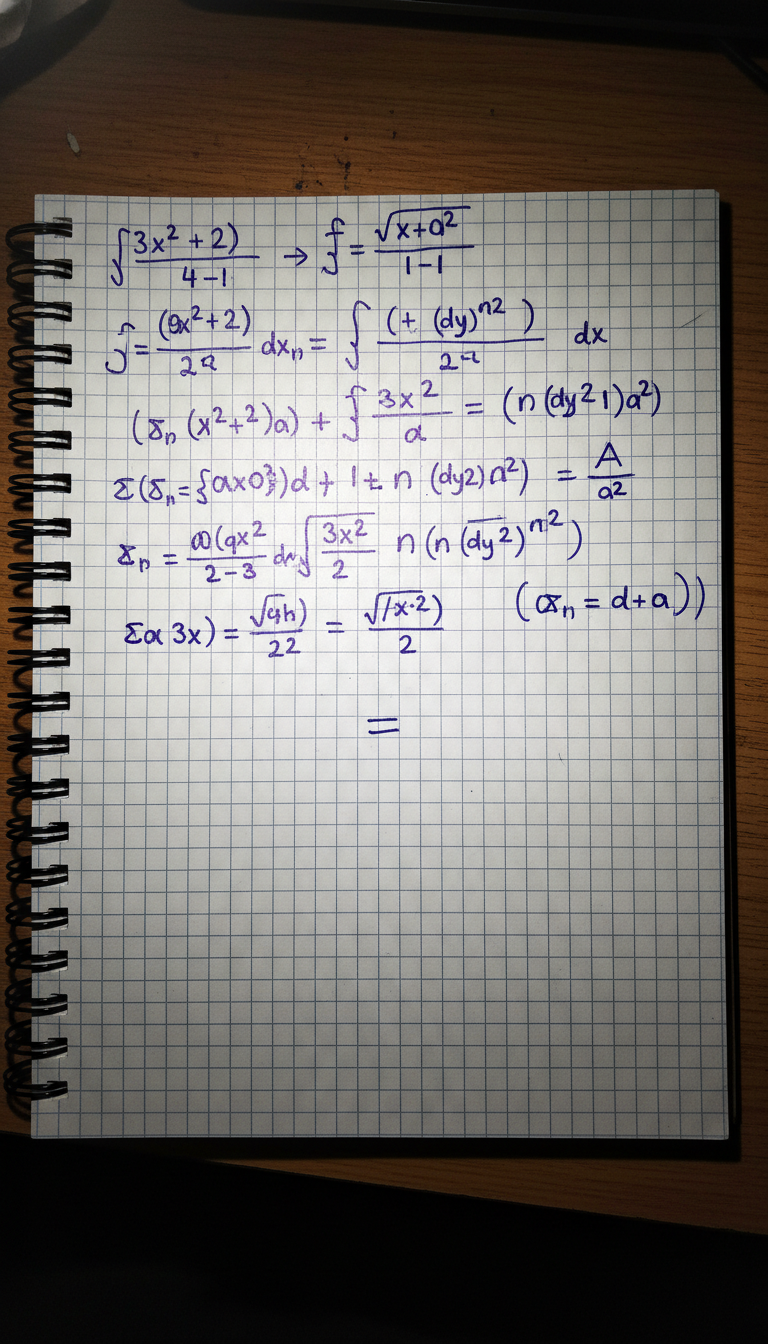 ∫ 3x² + 2) / 4-1 → ƒ = √(x+a²) / 1-1
ƒ = (9x²+2) / 2a dxₙ = ∫ (+ (dy)ⁿ² ) / 2⁻ᵃ dx
(४ₙ (x²+²)a) + ∫ 3x² / a = (n (dy²1)a²)
Σ(४ₙ = {ax0³})d + 1± n (dy2)n²) = A / a²
४ₙ = ∞(9x² / 2-3 dx √3x² / 2 n (n (dy²)ⁿ²)
Σα 3x) = √(4h) / 22 = √(1x·2) / 2 (αₙ = d+a))
=